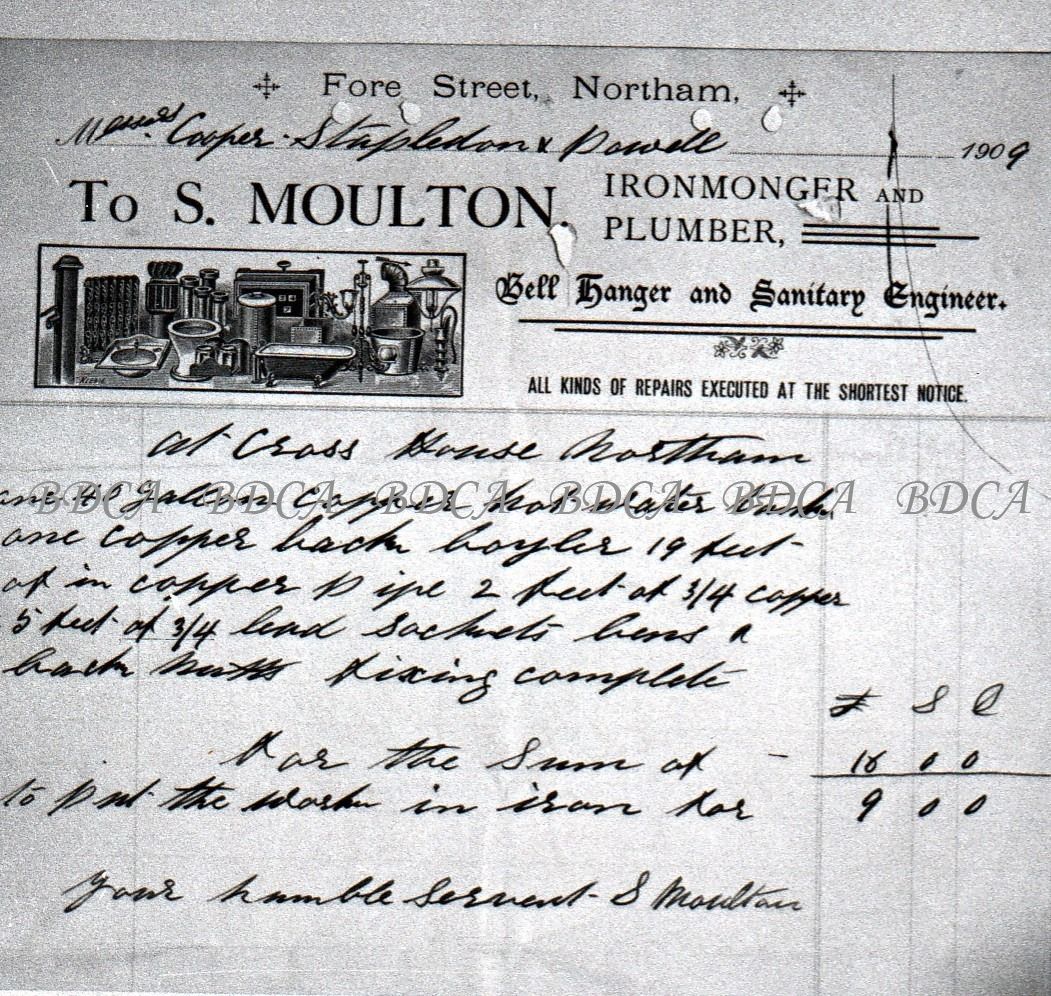 Fore Street, Northam,
Messrs Cooper Stapledon & Powell 1909
To S. MOULTON, IRONMONGER AND
PLUMBER,
Bell Hanger and Sanitary Engineer.
ALL KINDS OF REPAIRS EXECUTED AT THE SHORTEST NOTICE.
at Cross House Northam
one galon copper hot water tank
BDCA BDCA BDCA BDCA BDCA BDCA
one copper back boyler 19 feet
of in copper pipe 2 feet of 3/4 copper
5 feet of 3/4 lead sockets bens &
back nutts fixing complete
£ S D
For the Sum of - 0 0
to put the work in iron for 9 0 0
your humble servent S Moulton